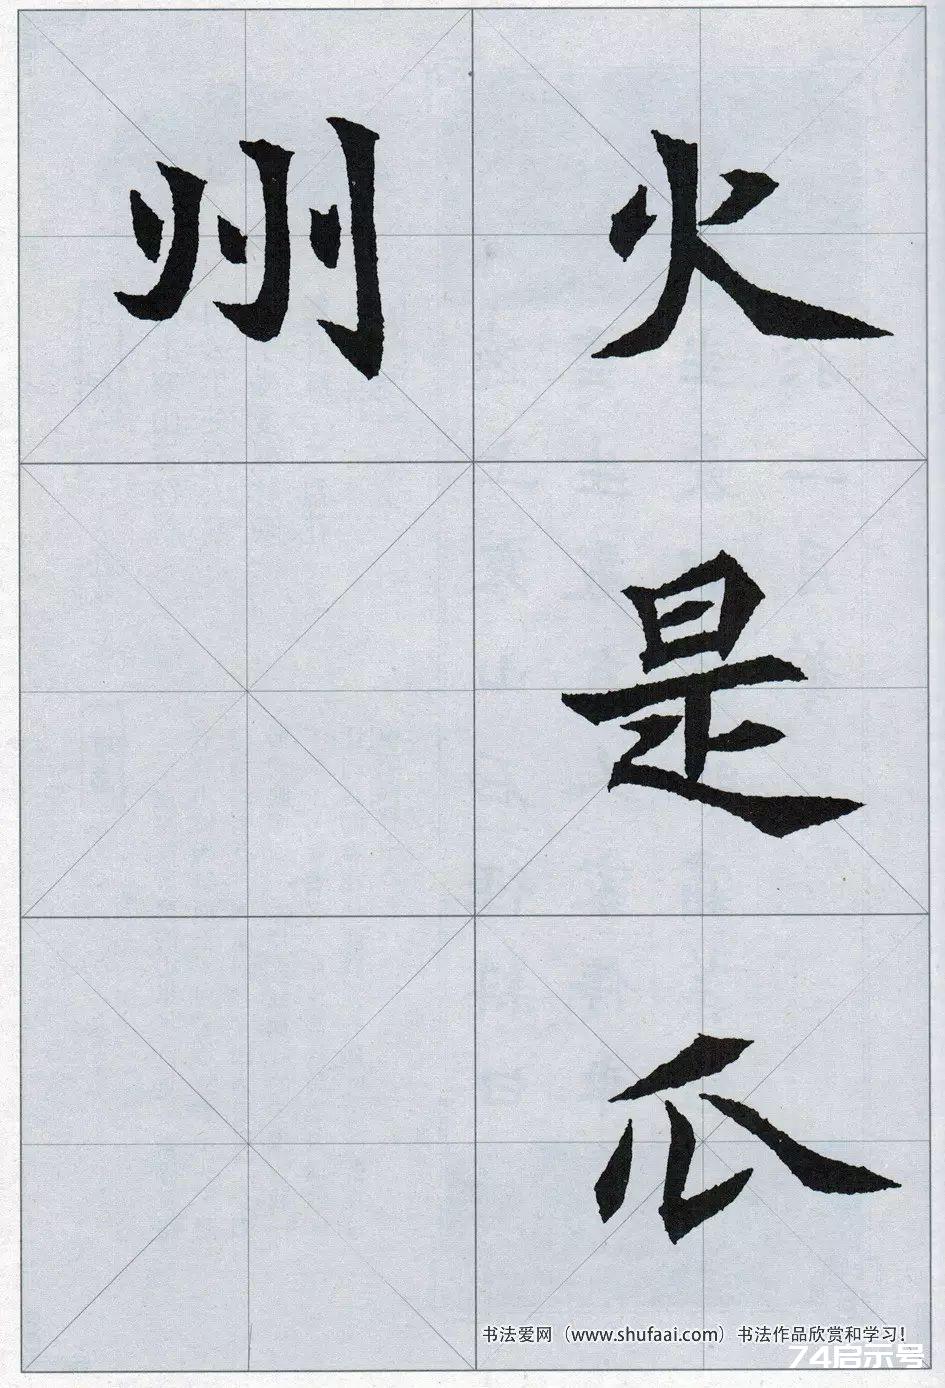 火是瓜
州
书法爱网（www.shufaai.com）书法作品欣赏和学习！
74启示号